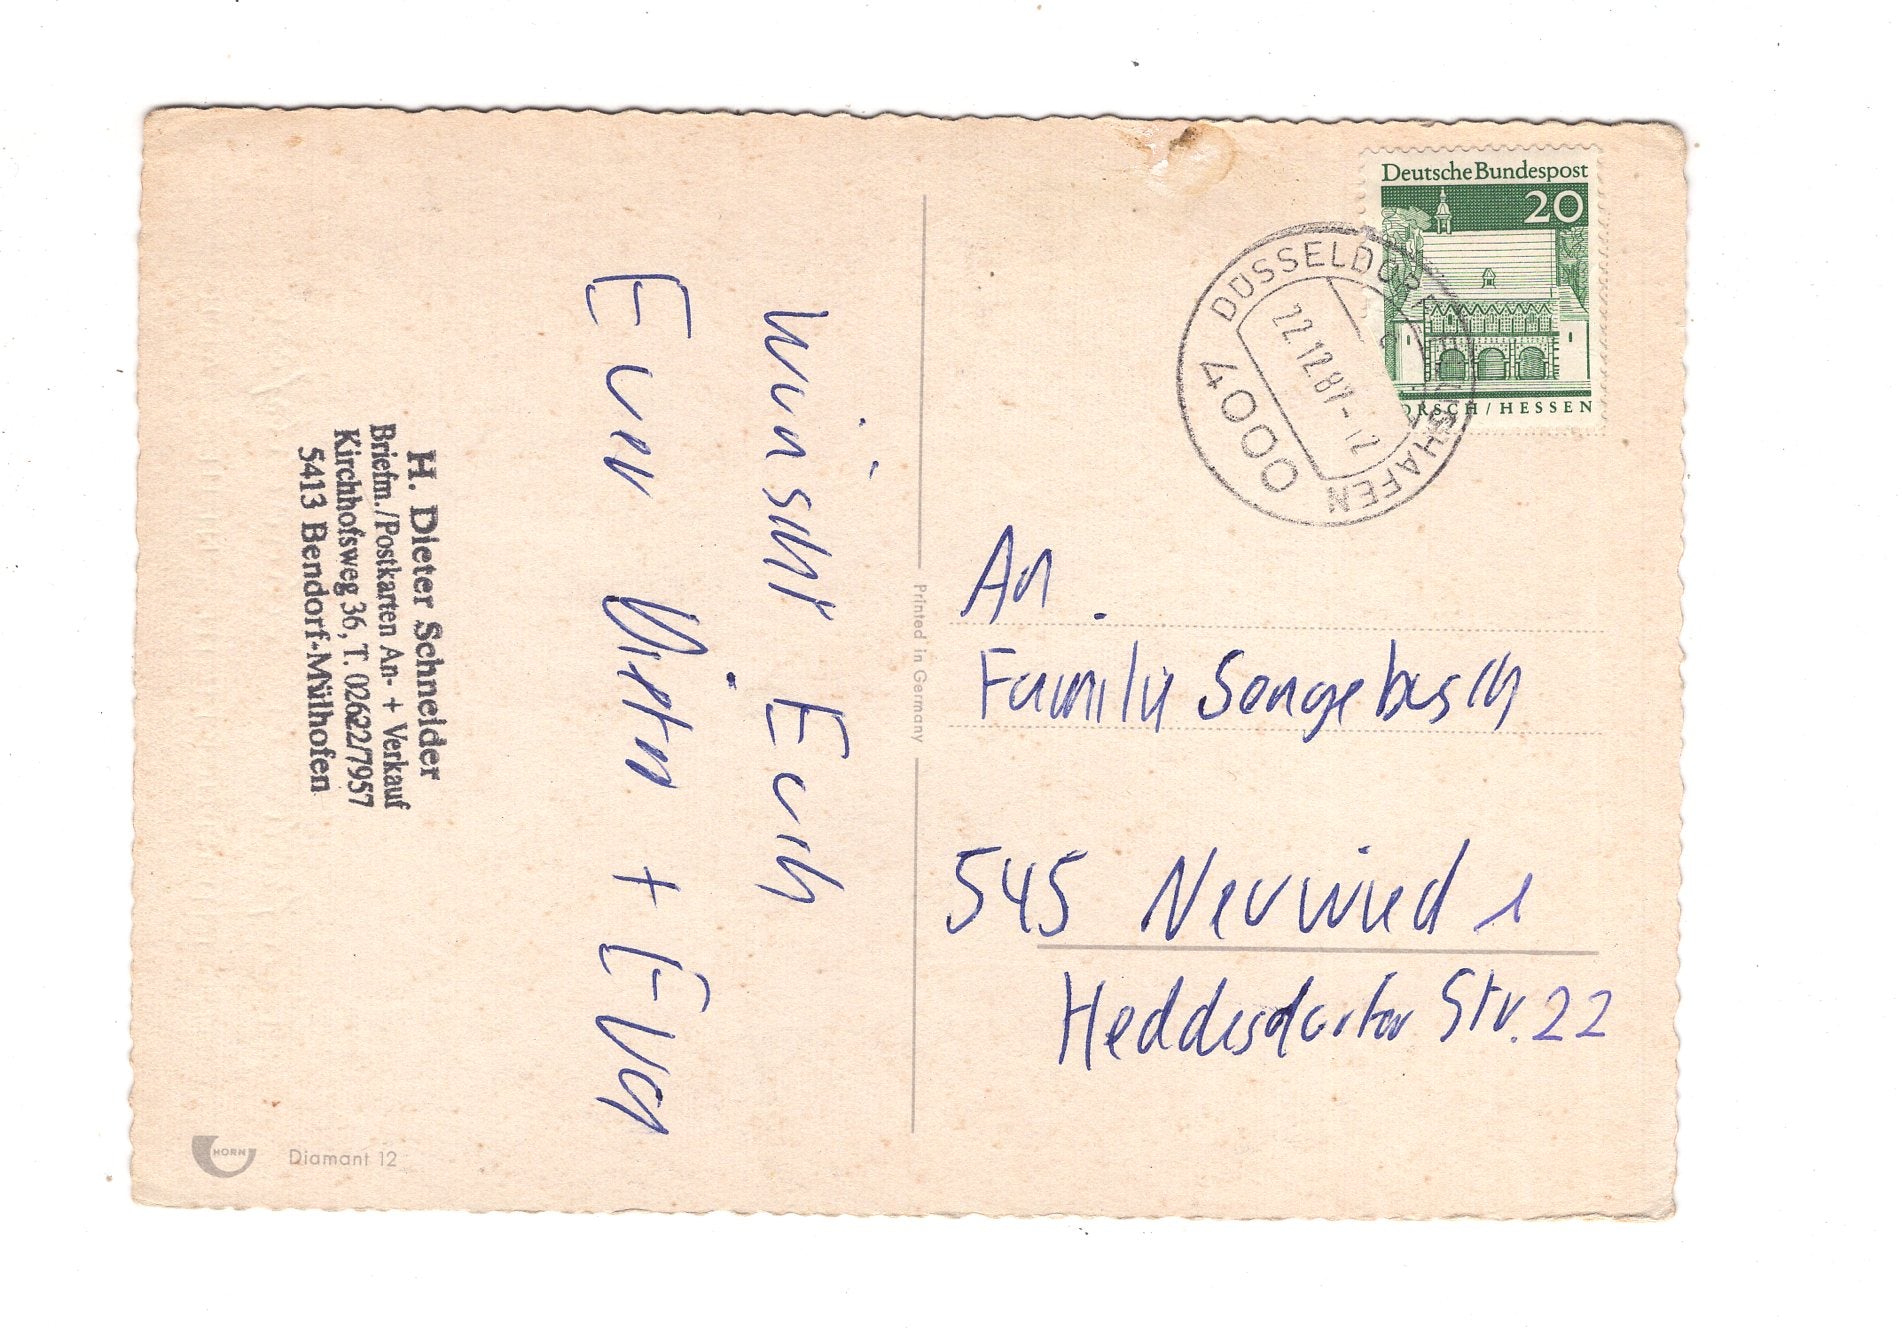 Deutsche Bundespost
20
ORSCH / HESSEN
DÜSSELDORF
4000
wünscht Euch
Euer Dieter + Eva
H. Dieter Schneider
Briefm./Postkarten An- + Verkauf
Kirchhofsweg 36, T. 02622/7957
5413 Bendorf-Mülhofen
Printed in Germany
An
Familie Sengebusch
545 Neuwied 1
Heddesdorfer Str. 22
HORN
Diamant 12